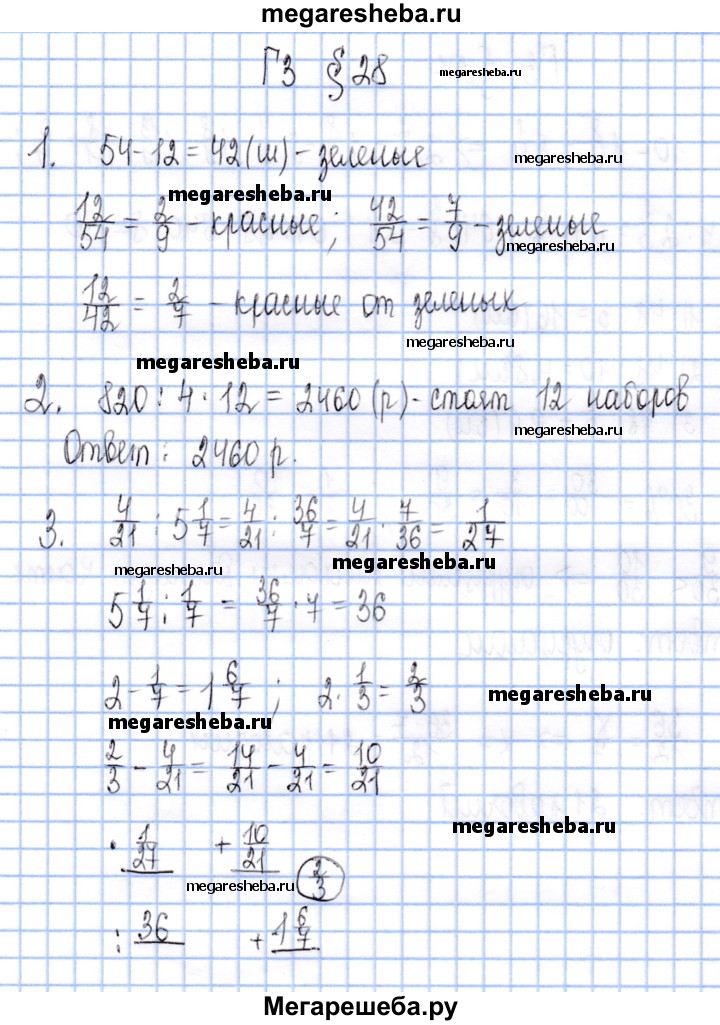 megaresheba.ru
ГЗ § 28
megaresheba.ru
1. 54-12 = 42 (ш) - зеленые
megaresheba.ru
megaresheba.ru
12/54 = 2/9 - красные; 42/54 = 7/9 - зеленые
megaresheba.ru
12/42 = 2/7 - красные от зеленых
megaresheba.ru
megaresheba.ru
2. 820 : 4 · 12 = 2460 (р) - стоят 12 наборов
megaresheba.ru
Ответ: 2460 р.
3. 4/21 : 5 1/7 = 4/21 : 36/7 = 4/21 · 7/36 = 1/27
megaresheba.ru
megaresheba.ru
5 1/7 : 1/7 = 36/7 · 7 = 36
2 - 1/7 = 1 6/7 ; 2 · 1/3 = 2/3
megaresheba.ru
megaresheba.ru
2/3 - 4/21 = 14/21 - 4/21 = 10/21
· 1/27 + 10/21
megaresheba.ru
megaresheba.ru
2/3
: 36 + 1 6/7
Мегарешеба.ру